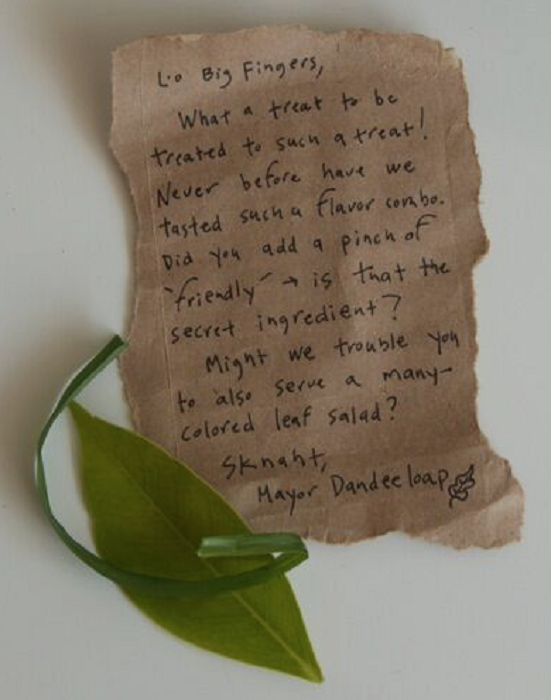 L.o Big Fingers,
What a treat to be
treated to such a treat!
Never before have we
tasted such a flavor combo.
Did you add a pinch of
"friendly" → is that the
secret ingredient?
Might we trouble you
to also serve a many-
colored leaf salad?
Sknaht,
Mayor Dandeeloap